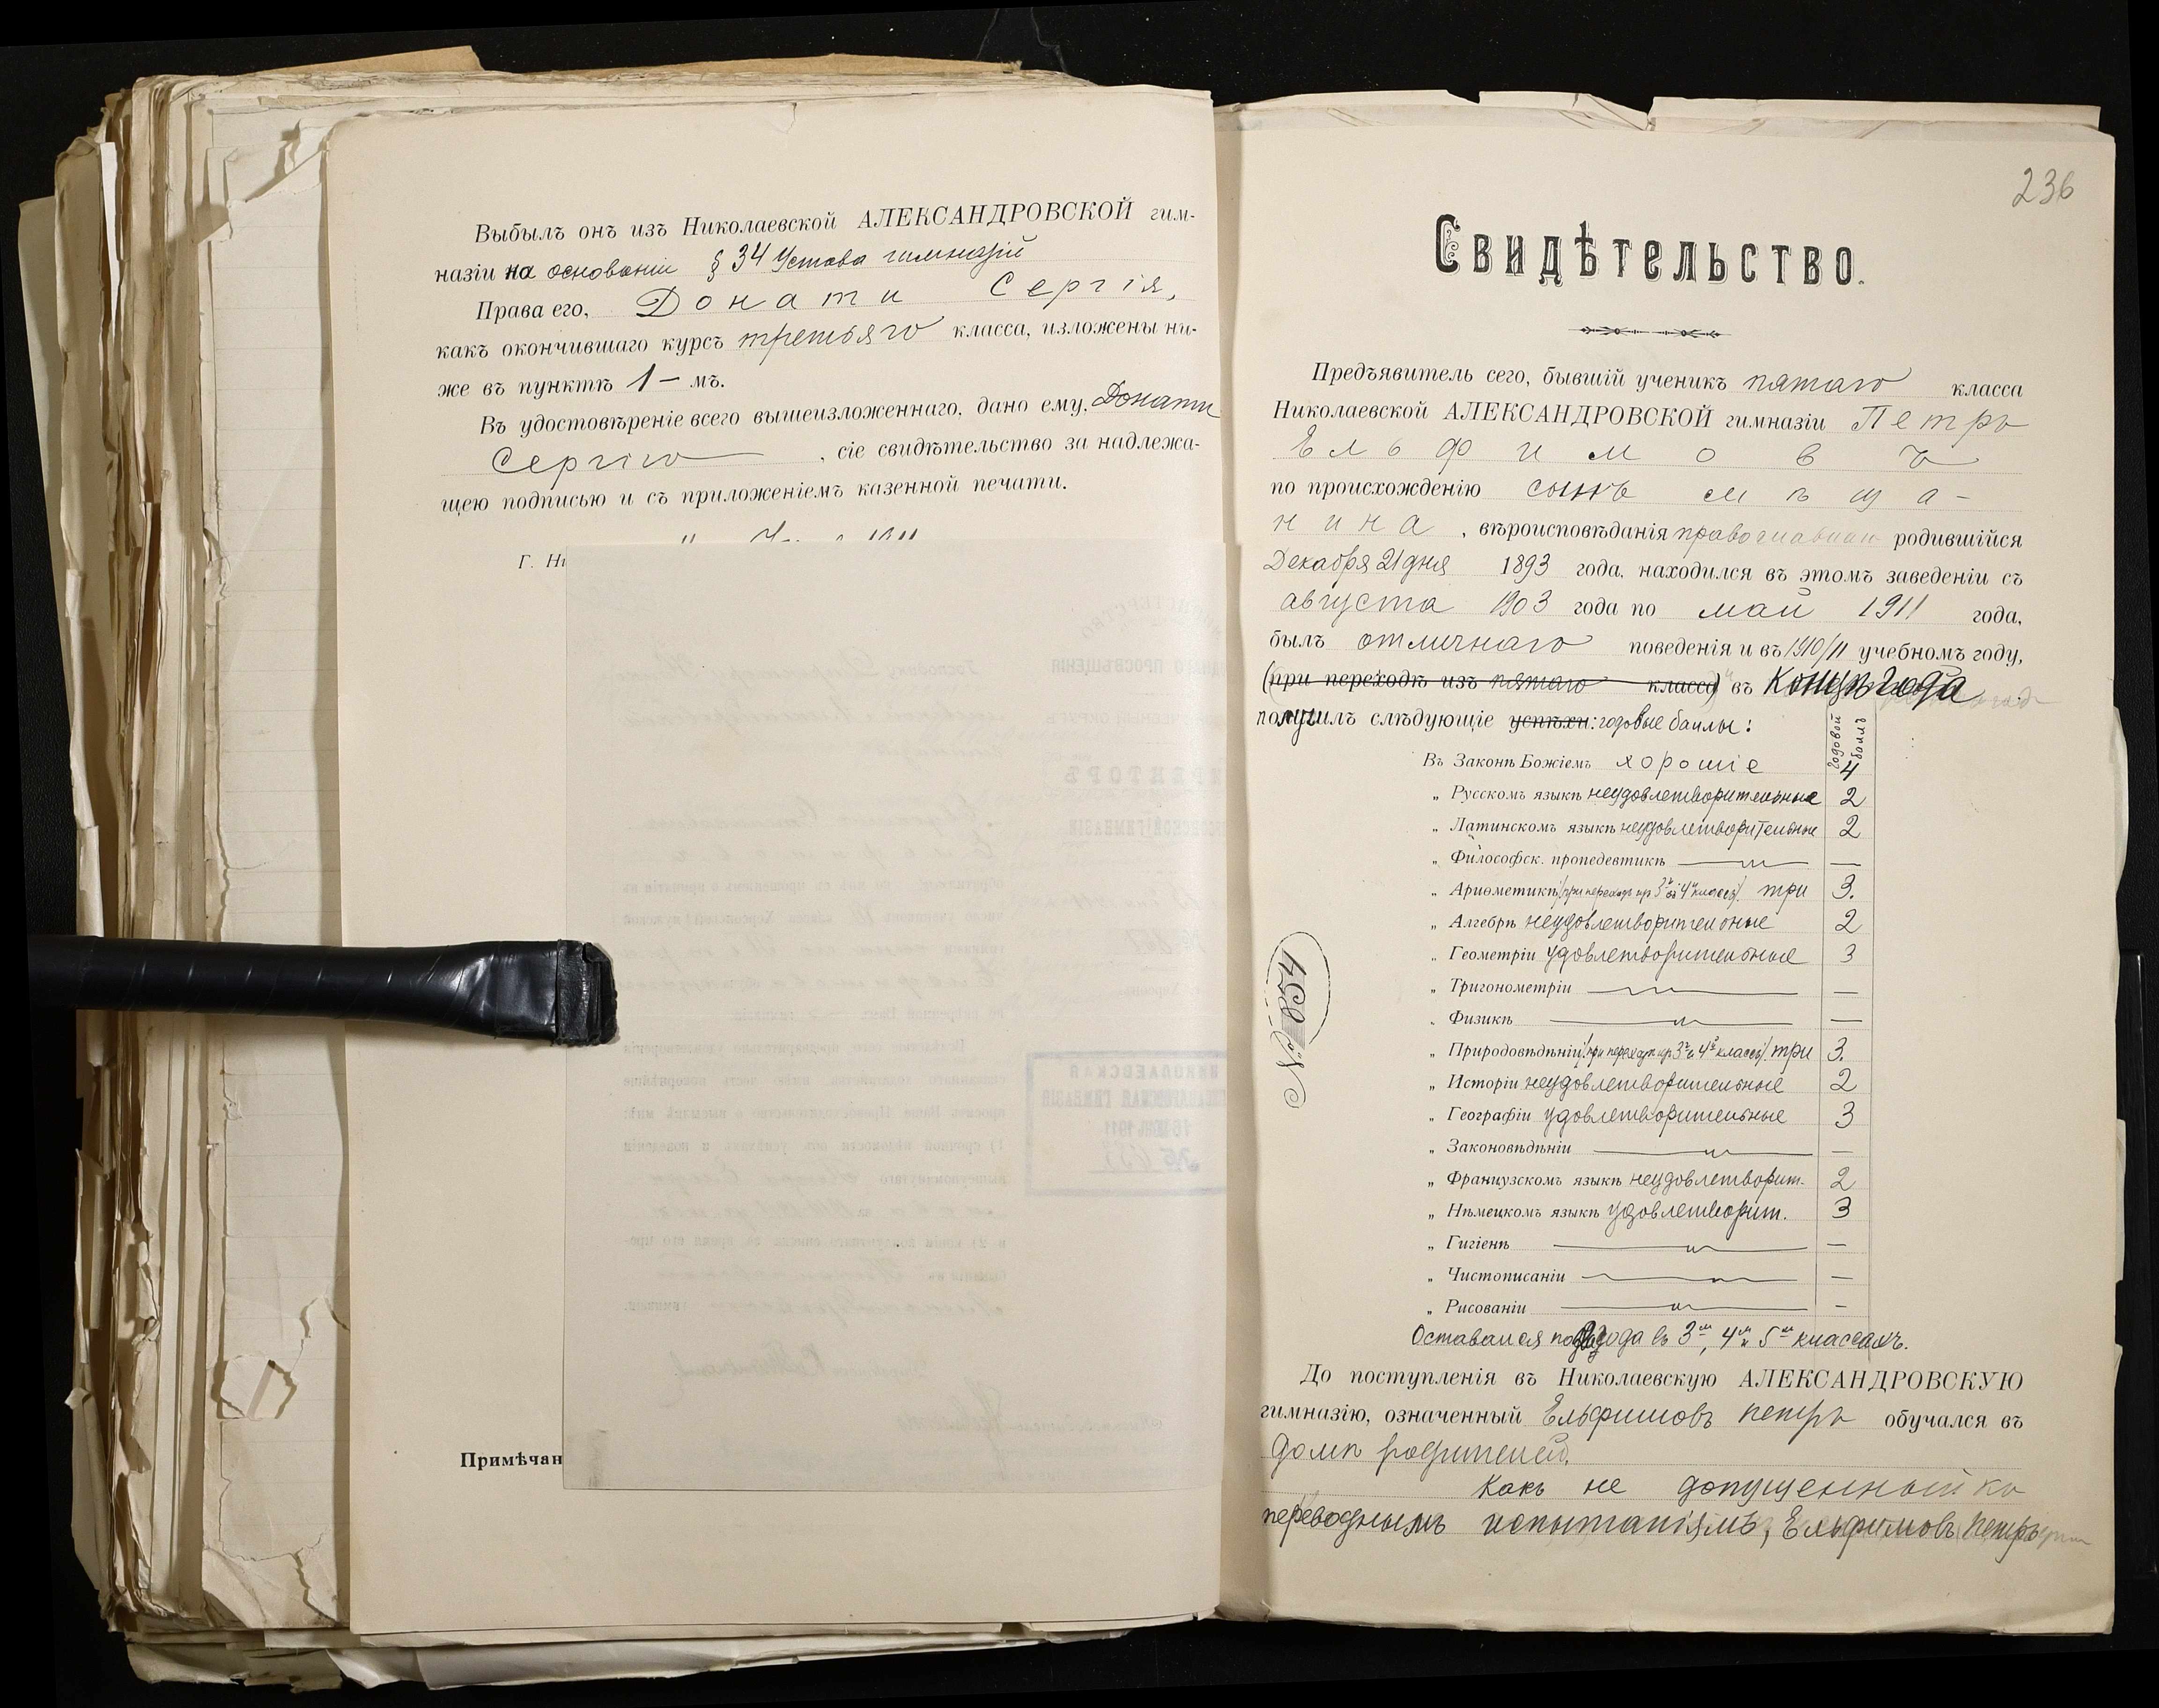 Выбылъ онъ изъ Николаевской АЛЕКСАНДРОВСКОЙ гим-
назіи на основаніи § 34 Устава гимназій
Права его, Донати Сергія,
какъ окончившаго курсъ третьяго класса, изложены ни-
же въ пунктѣ 1-мъ.
Въ удостовѣреніе всего вышеизложеннаго, дано ему, Донати
Сергію, сіе свидѣтельство за надлежа-
щею подписью и съ приложеніемъ казенной печати.
Г. Ни
Примѣчан
236
Свидѣтельство.
Предъявитель сего, бывшій ученикъ пятаго класса
Николаевской АЛЕКСАНДРОВСКОЙ гимназіи Петръ
Ельфимовъ
по происхожденію сынъ мѣща-
нина, вѣроисповѣданія православнаго родившійся
Декабря 21 дня 1893 года, находился въ этомъ заведеніи съ
августа 1903 года по май 1911 года,
былъ отличнаго поведенія и въ 1910/11 учебномъ году,
(при переходѣ изъ пятаго класса) въ концѣ года
получилъ слѣдующіе успѣхи: годовые баллы:
Годовой баллъ
Въ Законѣ Божіемъ хорошіе 4
„ Русскомъ языкѣ неудовлетворительные 2
„ Латинскомъ языкѣ неудовлетворительные 2
„ Философск. пропедевтикѣ —
„ Ариѳметикѣ (при переходѣ изъ 3 въ 4 классъ) три 3.
„ Алгебрѣ неудовлетворительные 2
„ Геометріи удовлетворительные 3
„ Тригонометріи —
„ Физикѣ —
„ Природовѣдѣніи (при переходѣ изъ 3 въ 4 классъ) три 3.
„ Исторіи неудовлетворительные 2
„ Географіи удовлетворительные 3
„ Законовѣдѣніи —
„ Французскомъ языкѣ неудовлетворит. 2
„ Нѣмецкомъ языкѣ удовлетворит. 3
„ Гигіенѣ —
„ Чистописаніи —
„ Рисованіи —
Оставался по два года въ 3м, 4м и 5м классахъ.
№ 834
До поступленія въ Николаевскую АЛЕКСАНДРОВСКУЮ
гимназію, означенный Ельфимовъ Петръ обучался въ
домѣ родителей.
Какъ не допущенный къ
переводнымъ испытаніямъ, Ельфимовъ Петръ